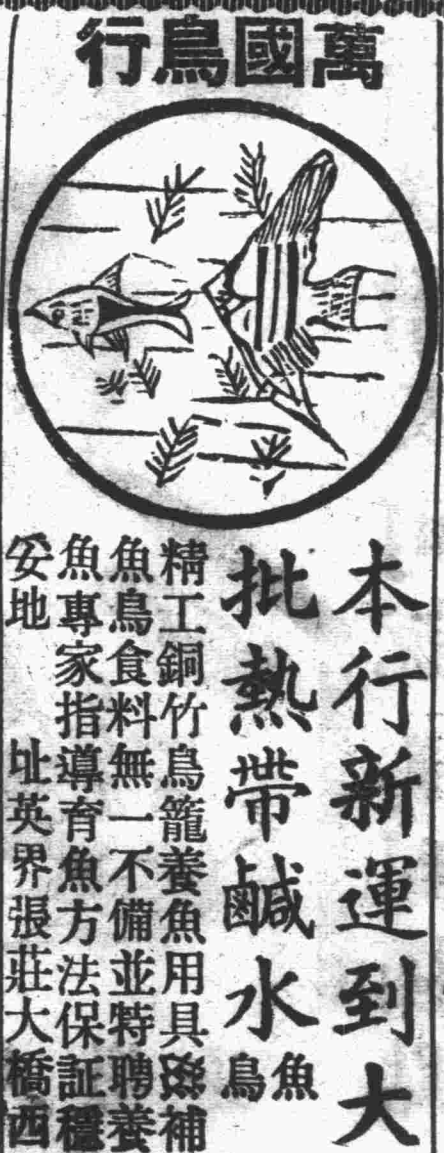 萬國鳥行
本行新運到大
批熱帶鹹水魚鳥
精工銅竹鳥籠養魚用具滋補
魚鳥食料無一不備並特聘養
魚專家指導育魚方法保証穩
妥地 址英界張莊大橋西